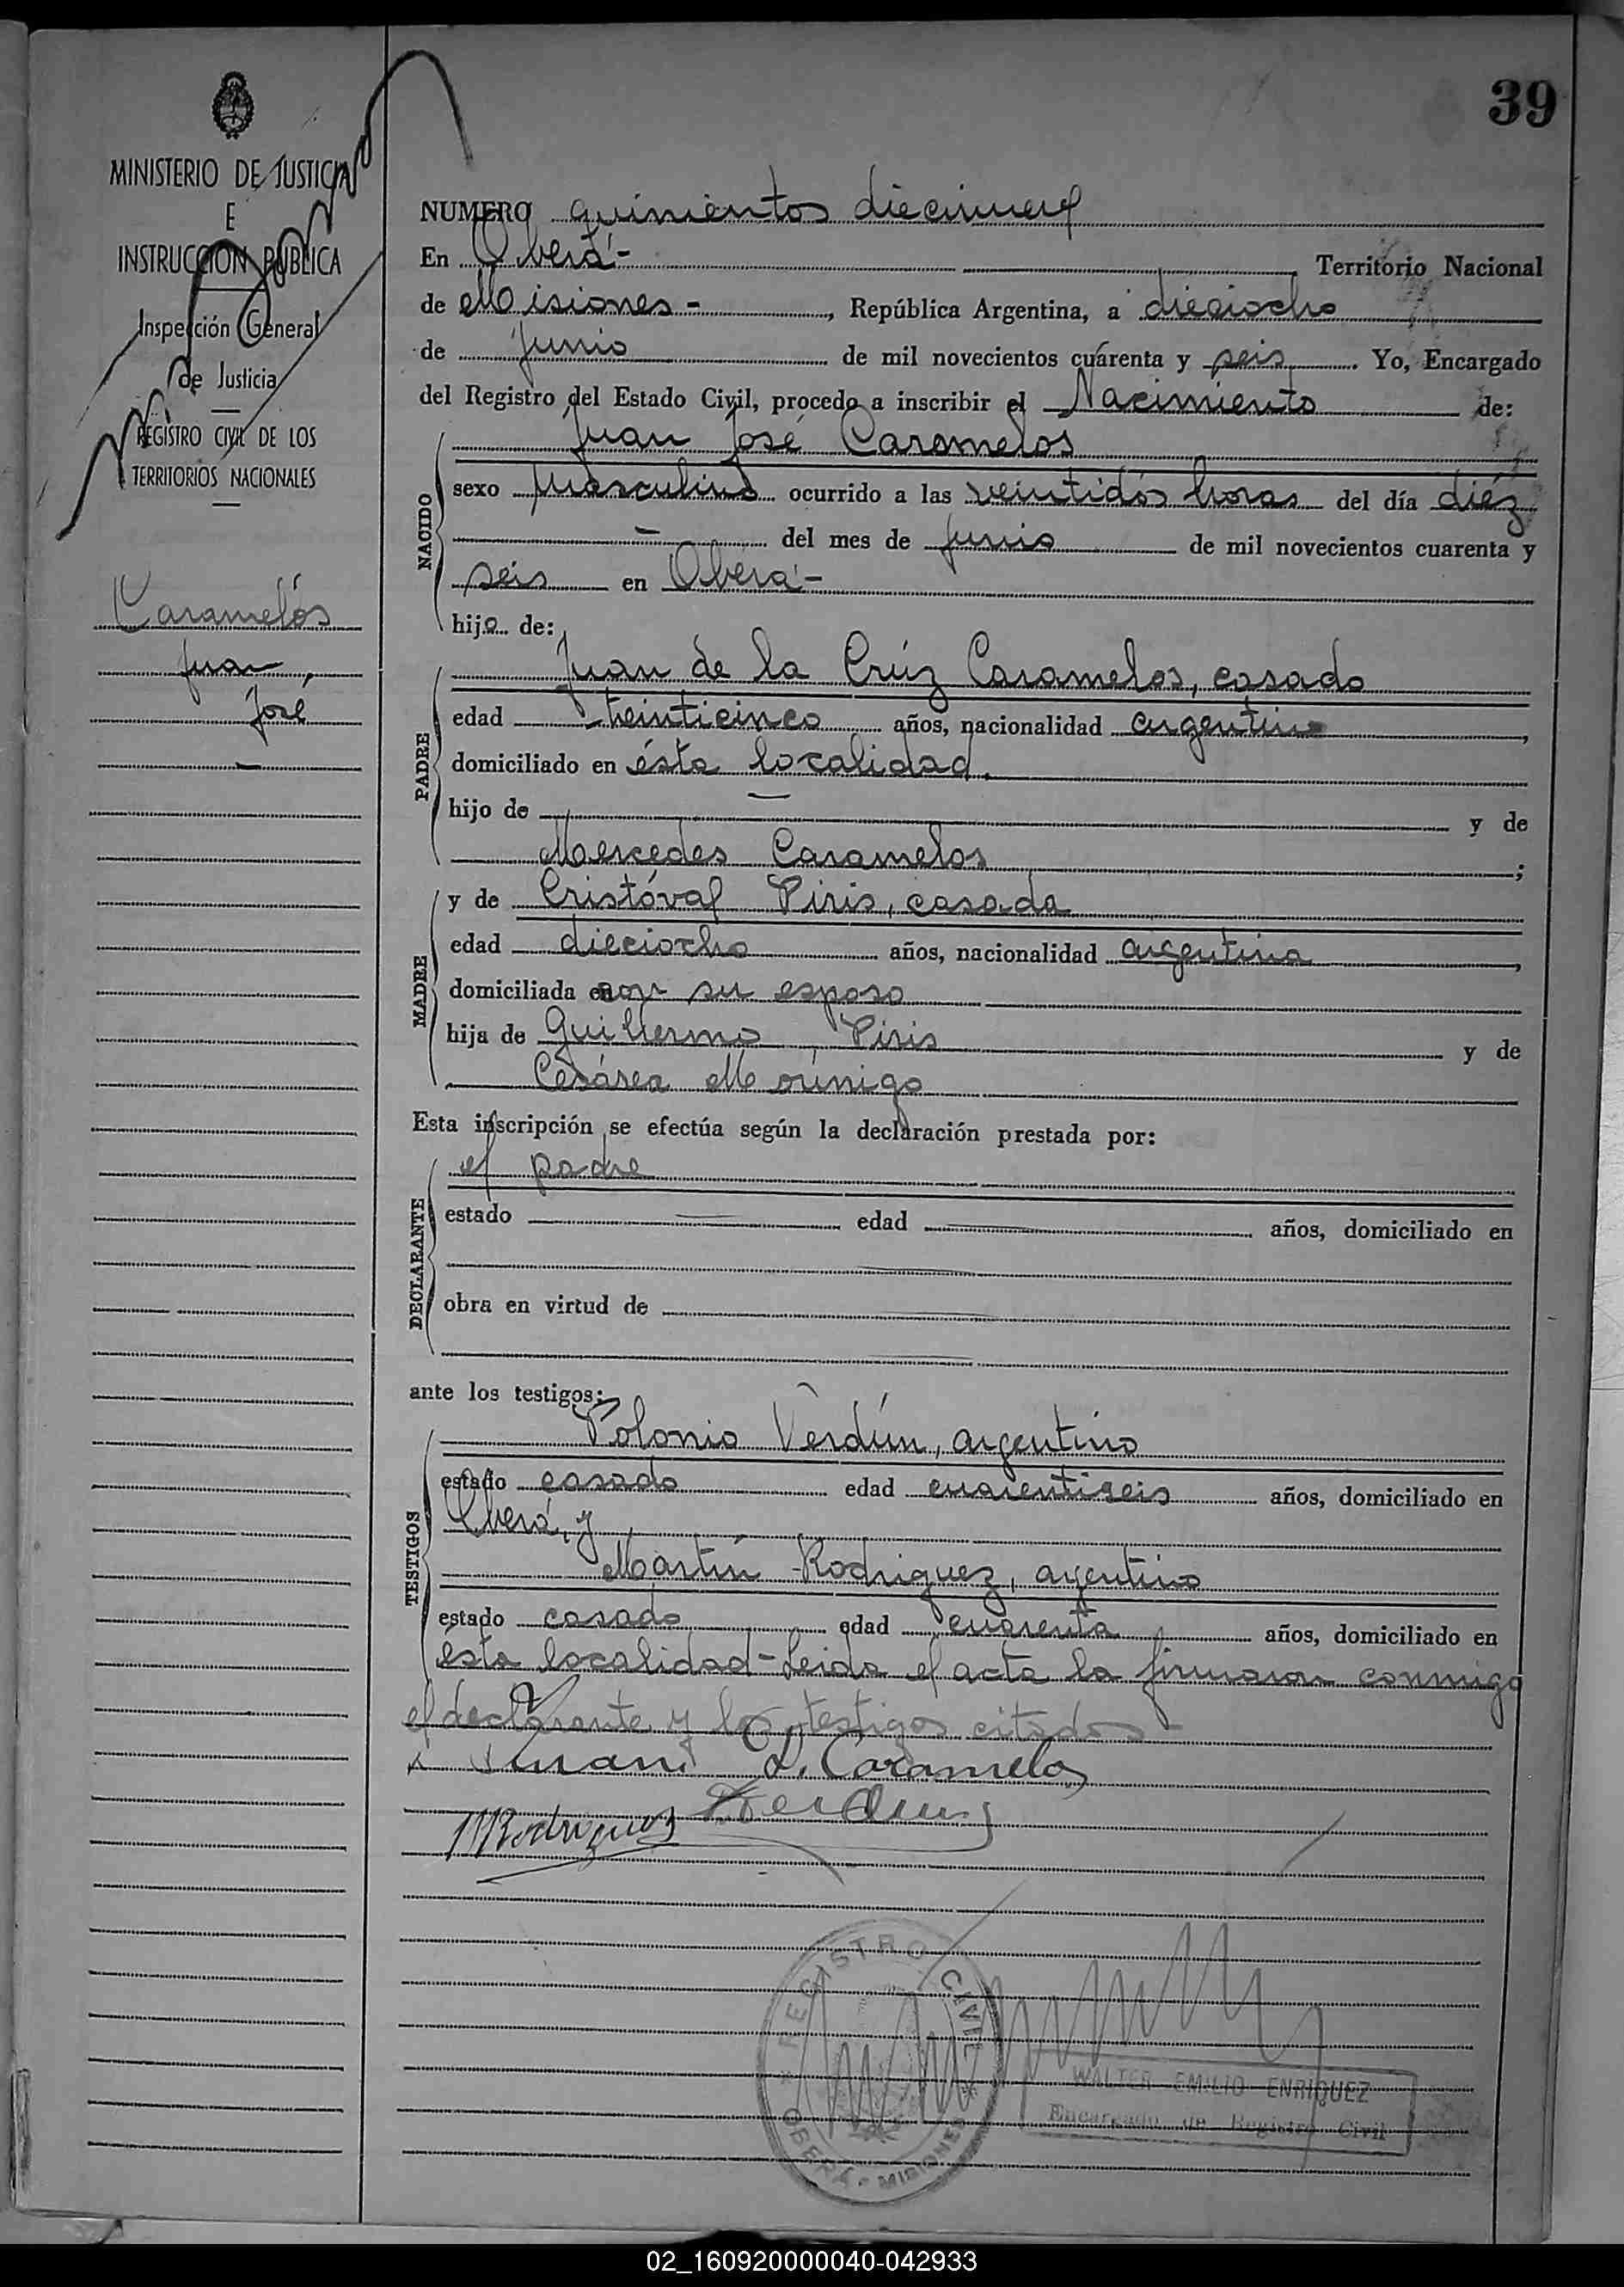 39
MINISTERIO DE JUSTICIA
E
INSTRUCCION PUBLICA
Inspección General
de Justicia
REGISTRO CIVIL DE LOS
TERRITORIOS NACIONALES
Caramelos
Juan
José
NUMERO quinientos diecinueve
En Oberá - Territorio Nacional
de Misiones - , República Argentina, a dieciocho
de Junio de mil novecientos cuarenta y seis. Yo, Encargado
del Registro del Estado Civil, procedo a inscribir el Nacimiento de:
NACIDO
Juan José Caramelos
sexo masculino ocurrido a las veintidós horas del día diéz
- del mes de Junio de mil novecientos cuarenta y
seis en Oberá -
hijo de:
PADRE
Juan de la Crúz Caramelos, casado
edad treinticinco años, nacionalidad argentino,
domiciliado en ésta localidad.
hijo de — y de
Mercedes Caramelos ;
MADRE
y de Cristóval Piris, casada
edad dieciocho años, nacionalidad argentina,
domiciliada en con su esposo
hija de Guillermo Piris y de
Cesárea Morínigo
Esta inscripción se efectúa según la declaración prestada por:
DECLARANTE
el padre
estado — edad — años, domiciliado en
obra en virtud de
ante los testigos:
TESTIGOS
Polonio Verdún, argentino
estado casado edad cuarentiseis años, domiciliado en
Oberá, y
Martín Rodriguez, argentino
estado casado edad cuarenta años, domiciliado en
esta localidad - Leida el acta la firmaron conmigo
el declarante y los testigos citados -
Juan D. Caramelos
Verdun
MRodriguez
REGISTRO CIVIL
OBERÁ - MISIONES
WALTER EMILIO ENRIQUEZ
Encargado de Registro Civil
02_160920000040-042933